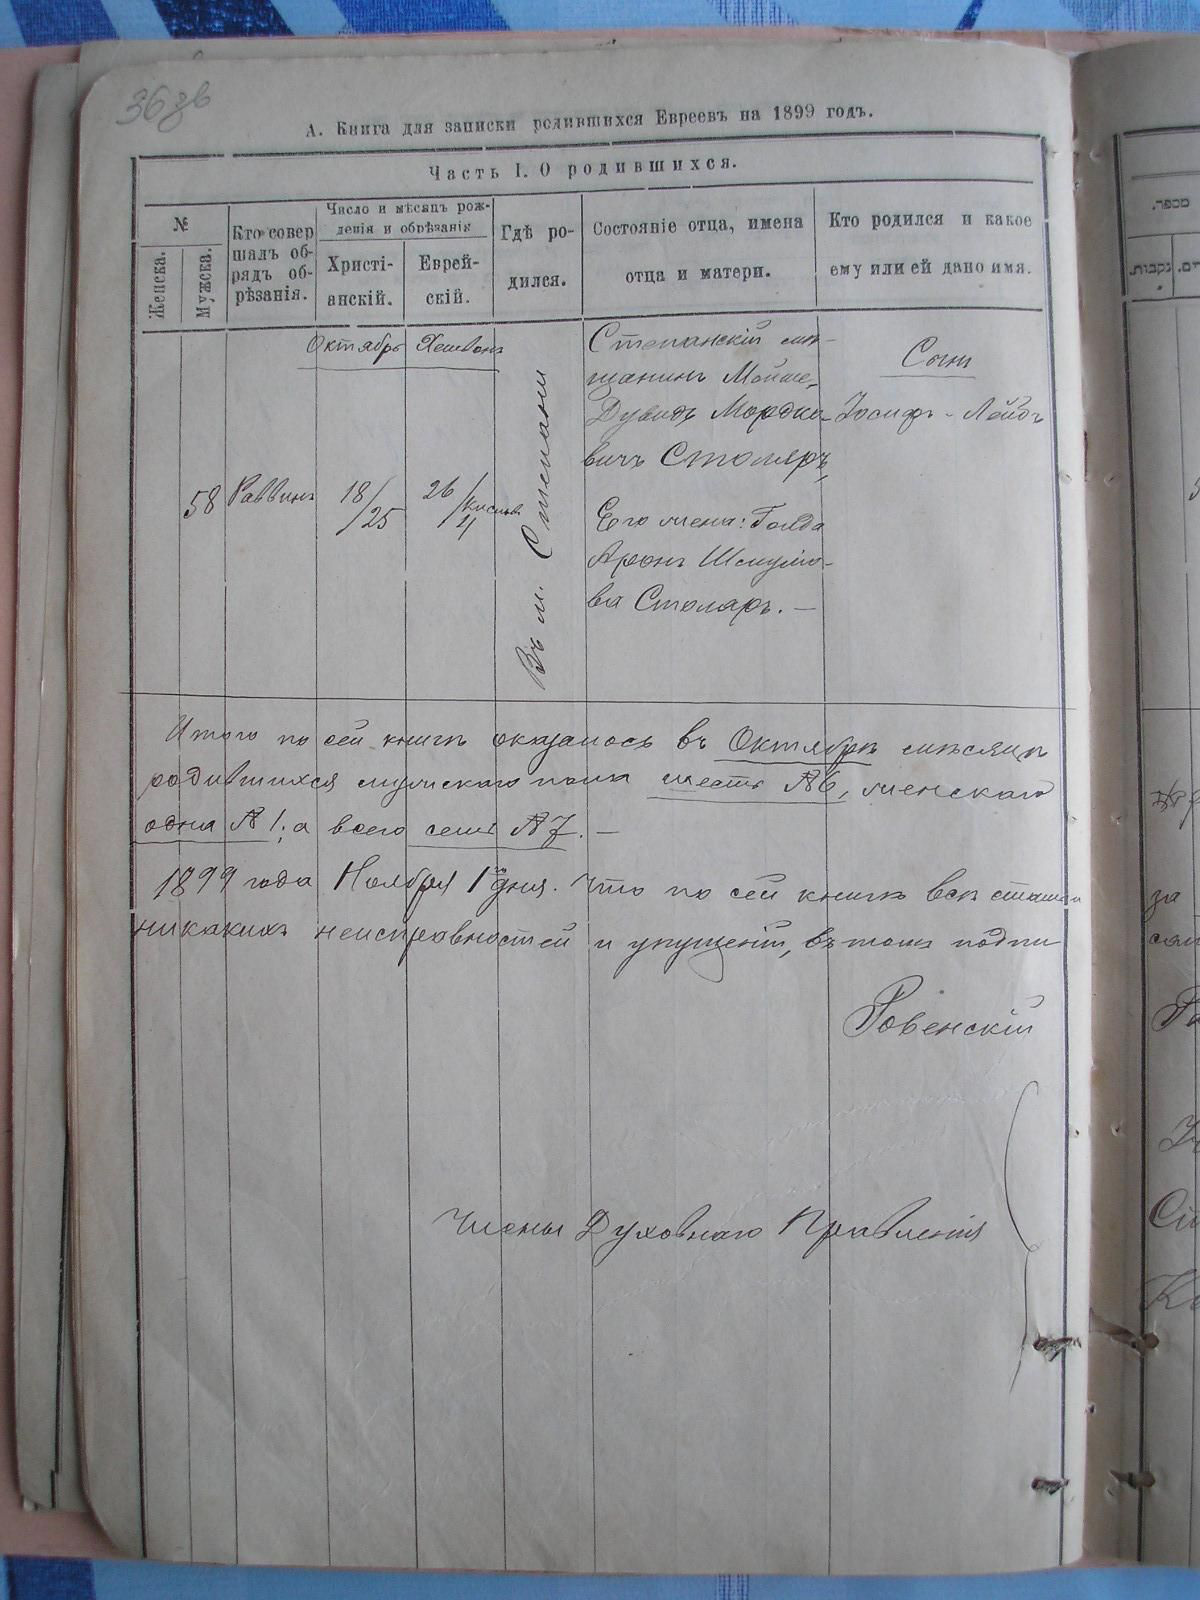 36 зв
А. Книга для записки родившихся Евреевъ на 1899 годъ.
Часть I. О родившихся.
№
Женска.
Мужска.
Кто совер
шалъ об-
рядъ об-
рѣзанія.
Число и мѣсяцъ рож-
денія и обрѣзанія
Христі-
анскій.
Еврей-
скій.
Гдѣ ро-
дился.
Состояніе отца, имена
отца и матери.
Кто родился и какое
ему или ей дано имя.
Октябрь Хешвонъ
58 Раввинъ 18/25 26/Кислев 4
Въ м. Степани
Степанскій мѣ-
щанинъ Мойше-
Дувидъ Мордко-
вичъ Столяръ,
Его жена: Голда
Аронъ Шмулю-
ва Столяръ. —
Сынъ
Іосифъ - Лейбъ
Итого по сей книгѣ оказалось въ Октябрѣ мѣсяцѣ
родившихся мужскаго пола шесть №6, женскаго
одна №1; а всего семь №7. —
1899 года Ноября 1го дня. Что по сей книгѣ всѣ статьи
никакихъ неисправностей и упущеній, въ томъ подпи
Ровенскій
Члены Духовнаго Правленія
מספר.
נקבות.
за